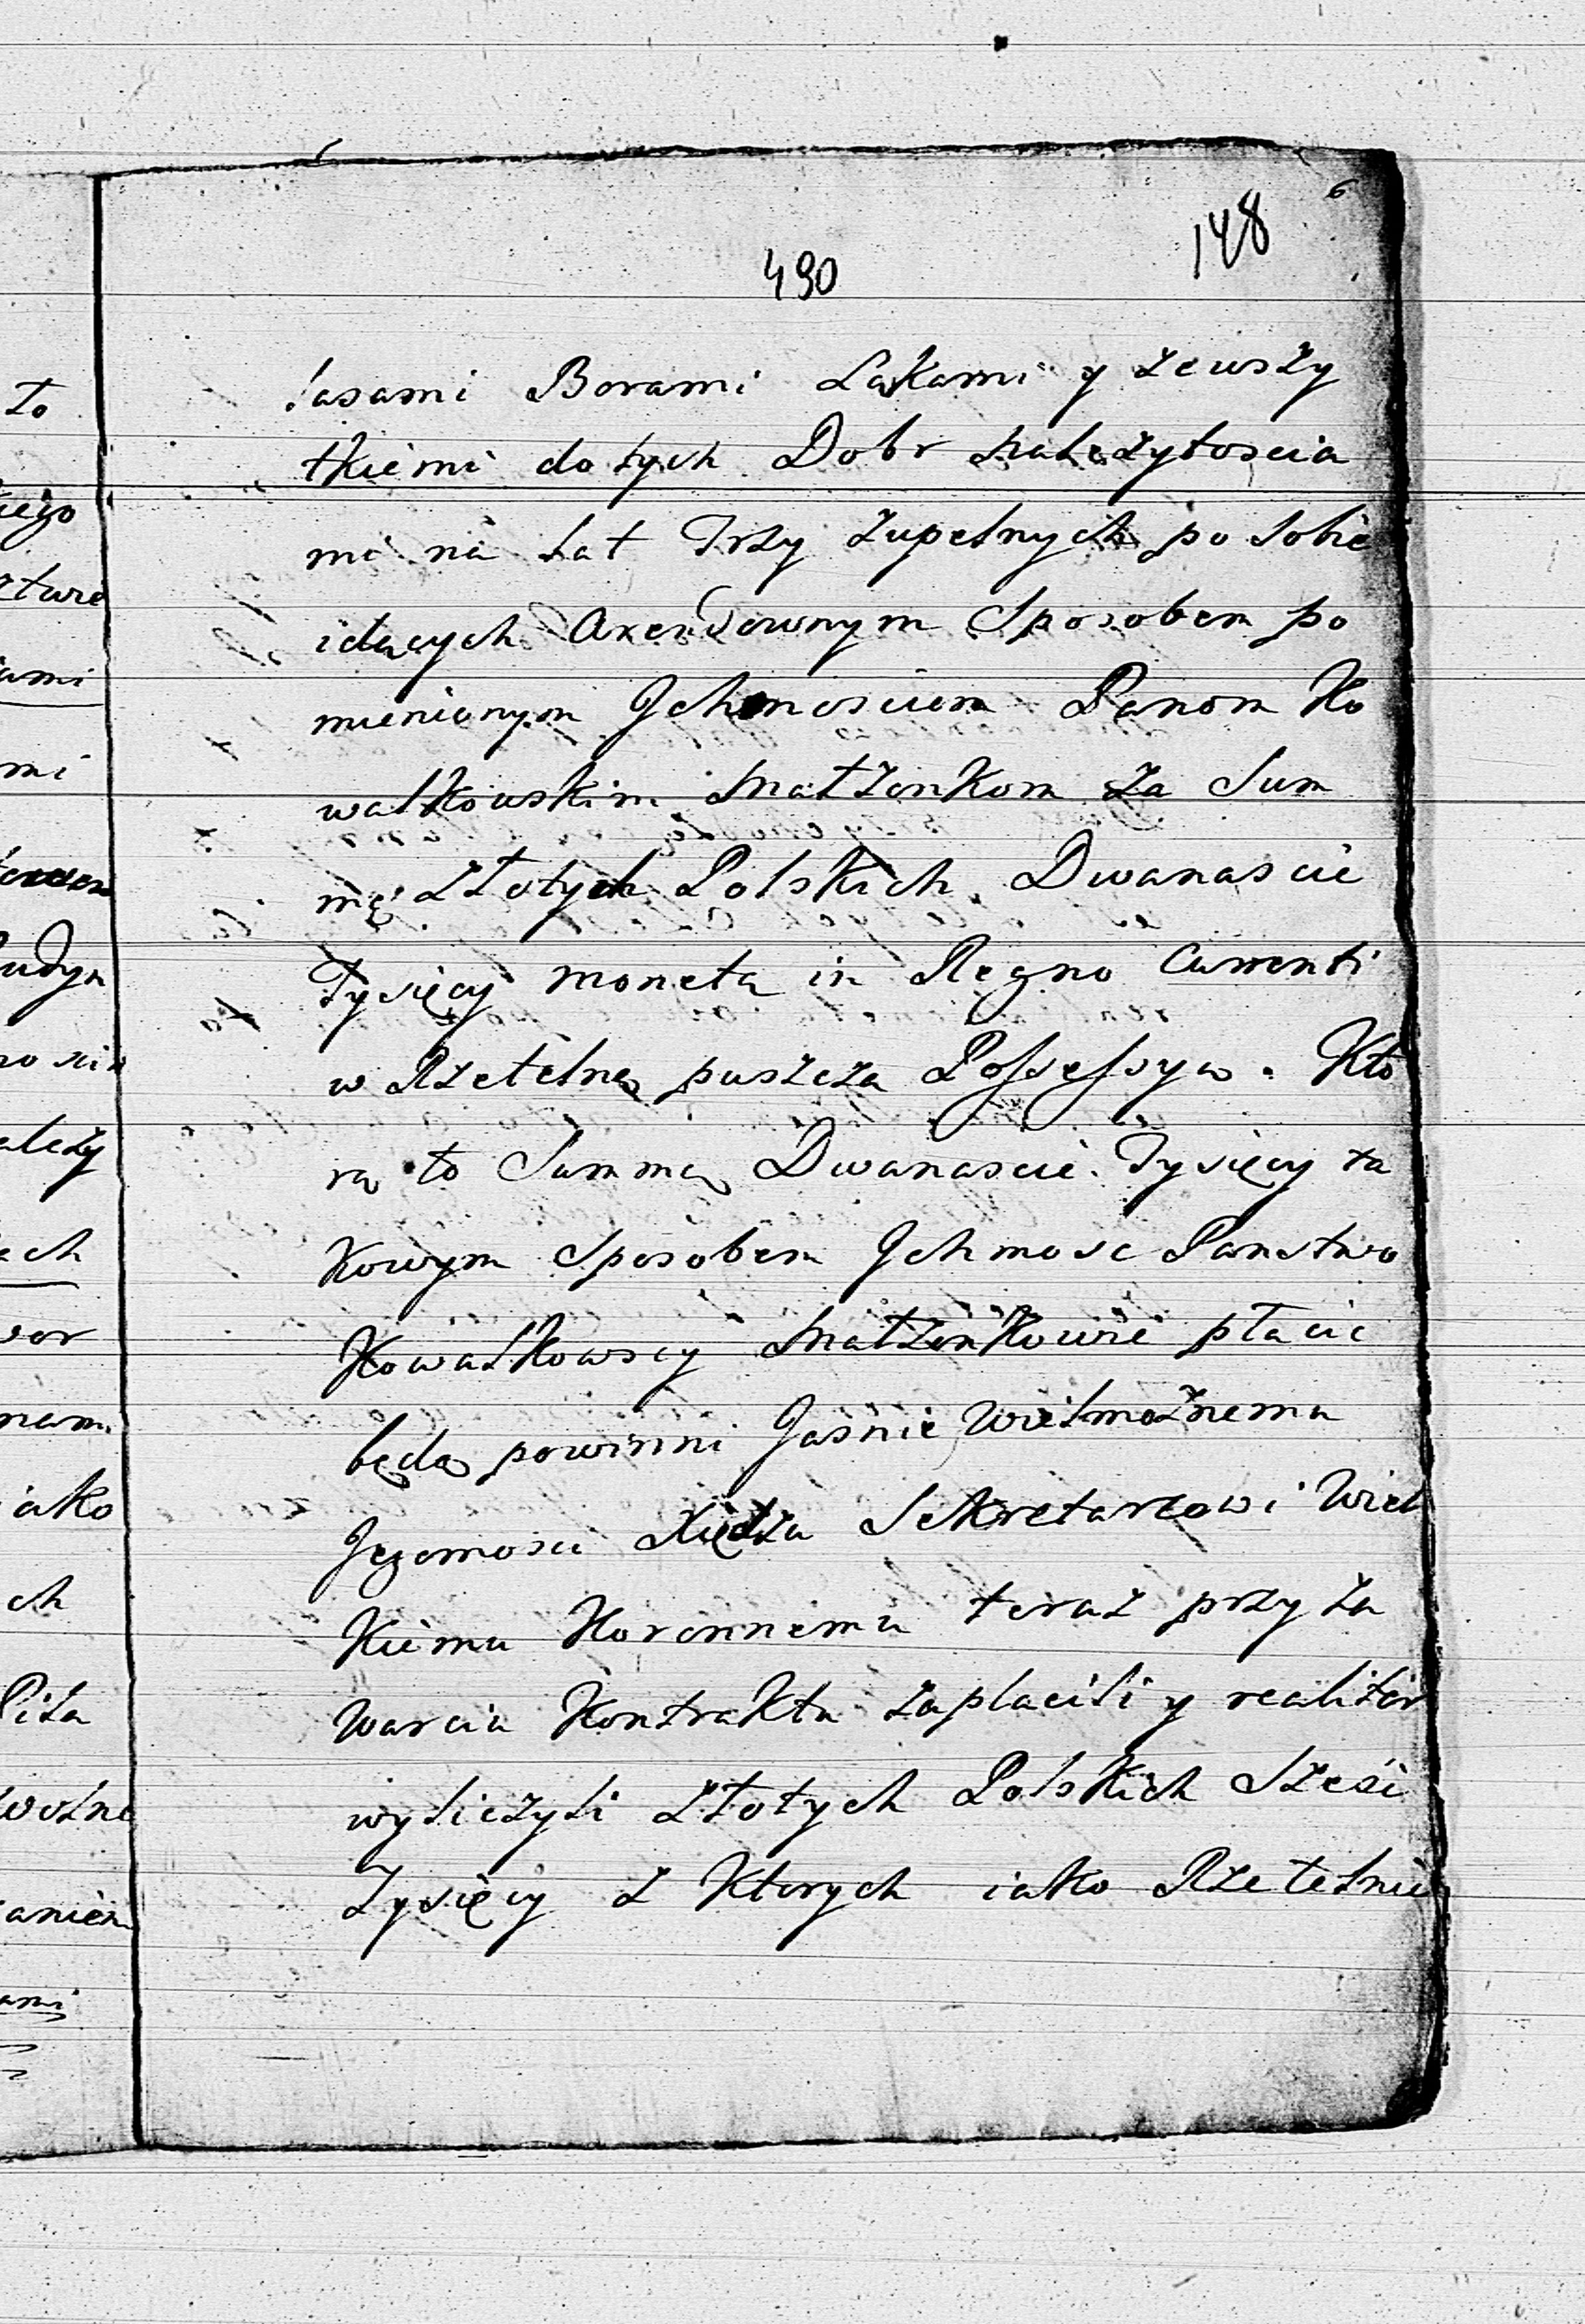 6
148
490
lasami Borami Ląkami y zewszy
tkiemi do tych Dobr należytoscia
mi na lat Trzy zupełnych po sobie
idących Arendownym Sposobem po
mienionym Ichmosciom Panom Ko
walkowskim Małżonkom za Sum
mę Złotych Polskich Dwanascie
Tysięcy monetą in Regno Currenti
w Rzetelną puszcza Possessyą. Kto
rą to Summą Dwanascie Tysięcy ta
kowym Sposobem Ichmosc Panstwo
Kowalkowscy Małżonkowie płacic
będą powinni Jaśnie Wielmożnemu
Jegomosci Xiędzu Sekretarzowi Wiel
kiemu Koronnemu teraz przy za
warciu Kontraktu zaplacili y realiter
wyliczyli Złotych Polskich Sześć
Tysięcy z Ktorych iako Rzetelnie
to
iego
ami
mi
ależy
ech
nami
iako
ch
Piła
wolne
aniem
ami